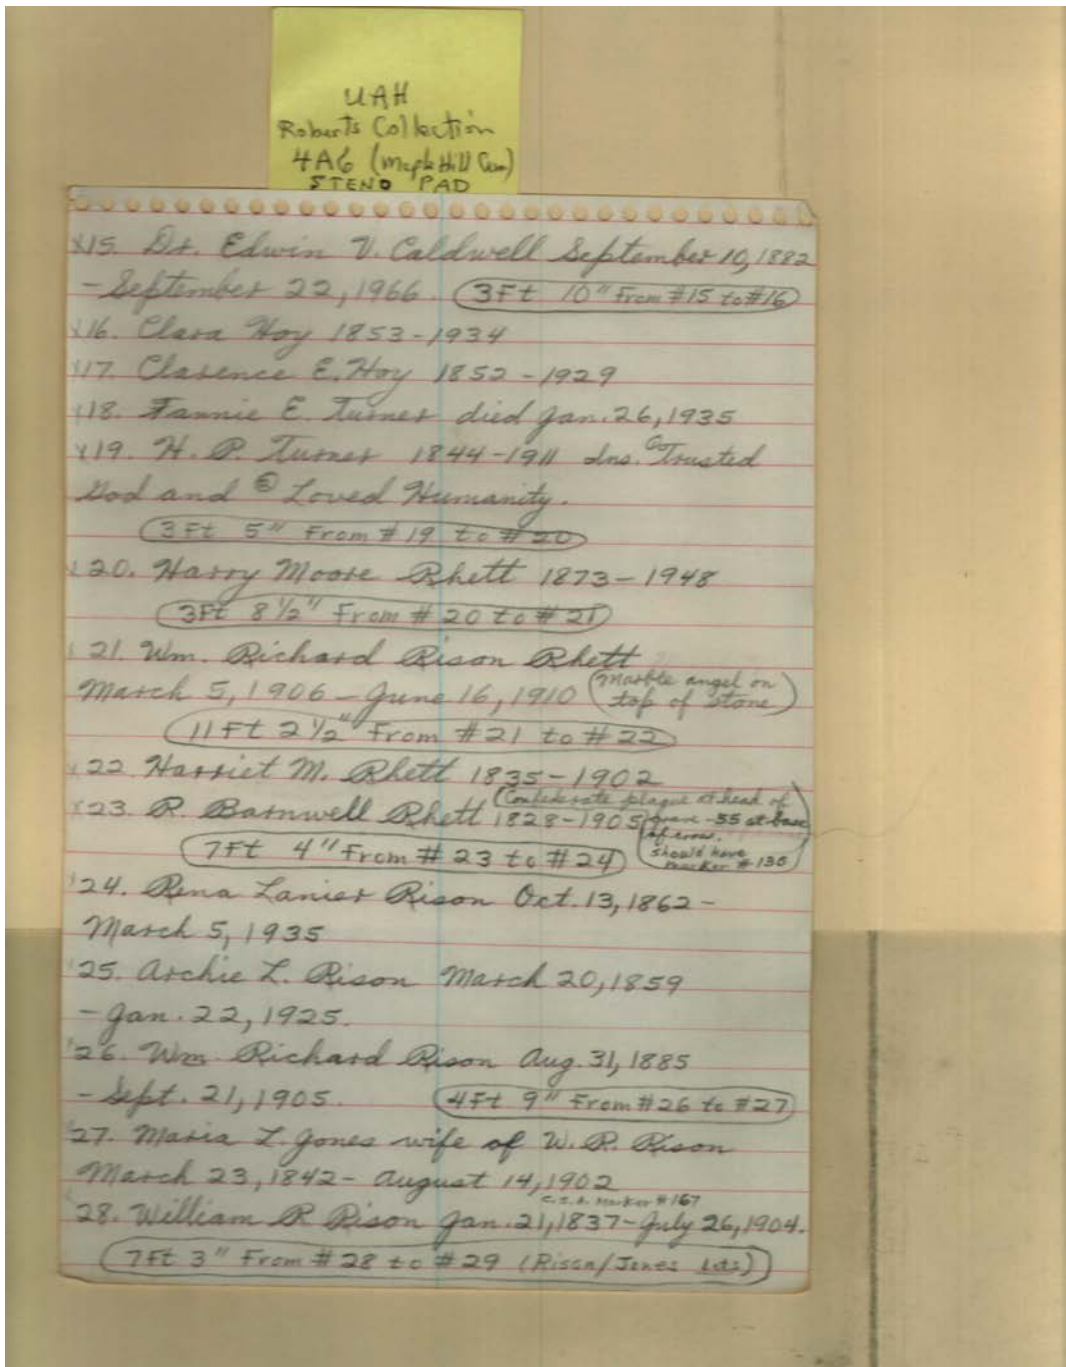 UAH
Roberts Collection
4A6 (Maple Hill Cem)
STENO PAD
x15. Dr. Edwin V. Caldwell September 10, 1882
- September 22, 1966. 3Ft 10" From #15 to #16
x16. Clara Hoy 1853-1934
x17. Clarence E. Hoy 1852-1929
x18. Fannie E. Turner died Jan. 26, 1935
x19. H. P. Turner 1844-1911 Ins. Trusted
God and Loved Humanity.
3Ft 5" From #19 to #20
x20. Harry Moore Rhett 1873-1948
3Ft 8 1/2" From #20 to #21
21. Wm. Richard Rison Rhett
March 5, 1906 - June 16, 1910 (Marble angel on
top of stone)
11Ft 2 1/2" From #21 to #22
x22. Harriet M. Rhett 1835-1902
x23. R. Barnwell Rhett 1828-1905 (Confederate plaque at head of
grave -55 at base
of cross.
should have
marker #136)
7Ft 4" From #23 to #24
24. Rena Lanier Rison Oct. 13, 1862 -
March 5, 1935
25. Archie L. Rison March 20, 1859
- Jan. 22, 1925.
26. Wm. Richard Rison Aug. 31, 1885
- Sept. 21, 1905. 4Ft 9" From #26 to #27
27. Maria L. Jones wife of W. R. Rison
March 23, 1842 - August 14, 1902
C.S.A. Marker #167
28. William R Rison Jan. 21, 1837 - July 26, 1904.
7Ft 3" From #28 to #29 (Rison/Jones Lots)